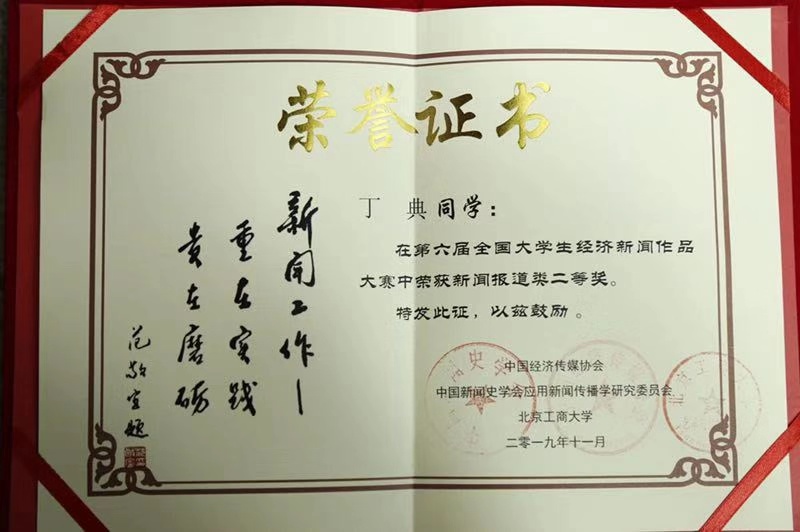 荣誉证书
新闻工作——
重在实践
贵在磨砺
范敬宜题
丁 典同学：
在第六届全国大学生经济新闻作品
大赛中荣获新闻报道类二等奖。
特发此证，以兹鼓励。
中国经济传媒协会
中国新闻史学会应用新闻传播学研究委员会
北京工商大学
二零一九年十一月